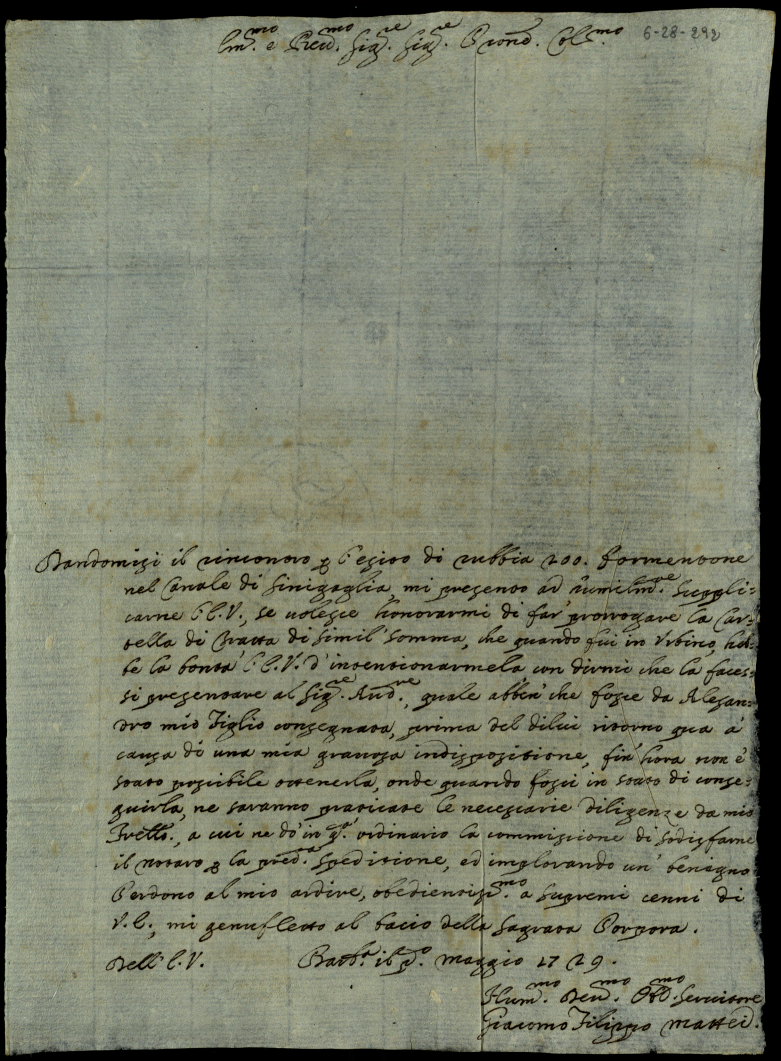 Em.mo e Rev.mo Sig.re Sig.re Pron. Col.mo 6-28-292
Dandomisi il rincontro p l'esito di rubbia 200. formentone
nel Canale di Sinigaglia, mi presento ad humilm.te suppli:
carne l'E.V., se volesse honorarmi di far' prorrogare la Car:
tella di Tratta di simil' somma, che quando fui in Urbino, heb:
be la bontà l'E.V. d'intentionarmela con dirmi che la faces:
si presentare al Sig.re Aud.re, quale abben che fosse da Alesan:
dro mio Figlio consegnata, prima del dilui ritorno qua a'
causa di una mia gravosa indispositione, fin' hora non è
stato possibile ottenerla, onde quando fossi in stato di conse:
guirla, ne saranno praticate le necessarie diligenze da mio
Frello., a cui ne dò in q.o ordinario la commissione di sodisfarne
il notaro p la pred.a speditione, ed implorando un' benigno
Perdono al mio ardire, obedientiss.mo a supremi cenni di
V.E., mi genufletto al bacio della Sagrata Porpora.
Dell' E.V. Barb.a il p.o Maggio 1729.
Hum.mo Dev.mo Obl.mo Servitore
Giacomo Filippo Mattei